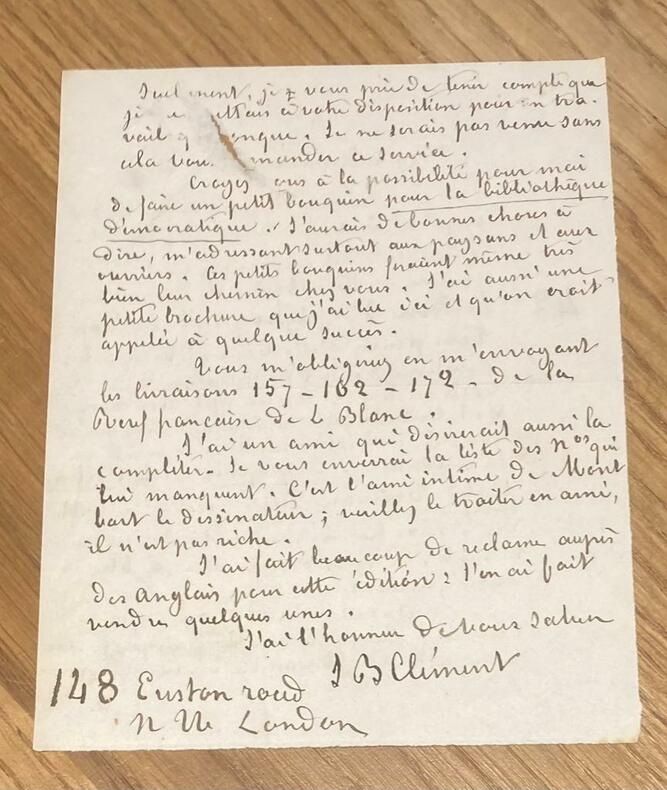 Seulement, je vous prie de tenir compte que
je ttais à votre disposition pour un tra-
vail q onque. Je ne serais pas venu sans
cela vou mander ce service.
Croyez ous à la possibilité pour moi
de faire un petit bouquin pour la bibliothèque
démocratique. J'aurais de bonnes choses à
dire, m'adressant surtout aux paysans et aux
ouvriers. Ces petits bouquins feraient même très
bien leur chemin chez vous. J'ai aussi une
petite brochure que j'ai lue ici et qu'on croit
appelée à quelque succès.
Vous m'obligeriez en m'envoyant
les livraisons 157-162-172- de la
française de L Blanc.
J'ai un ami qui désirerait aussi la
compléter. Je vous enverrai la liste des Nos qui
lui manquent. C'est l'ami intime de Mont
bart le dessinateur; veuillez le traiter en ami,
il n'est pas riche.
J'ai fait beaucoup de reclame auprès
des Anglais pour cette édition: l'en ai fait
vendre quelques unes.
J'ai l'honneur de vous saluer
J B Clément
148 Euston road
N W London